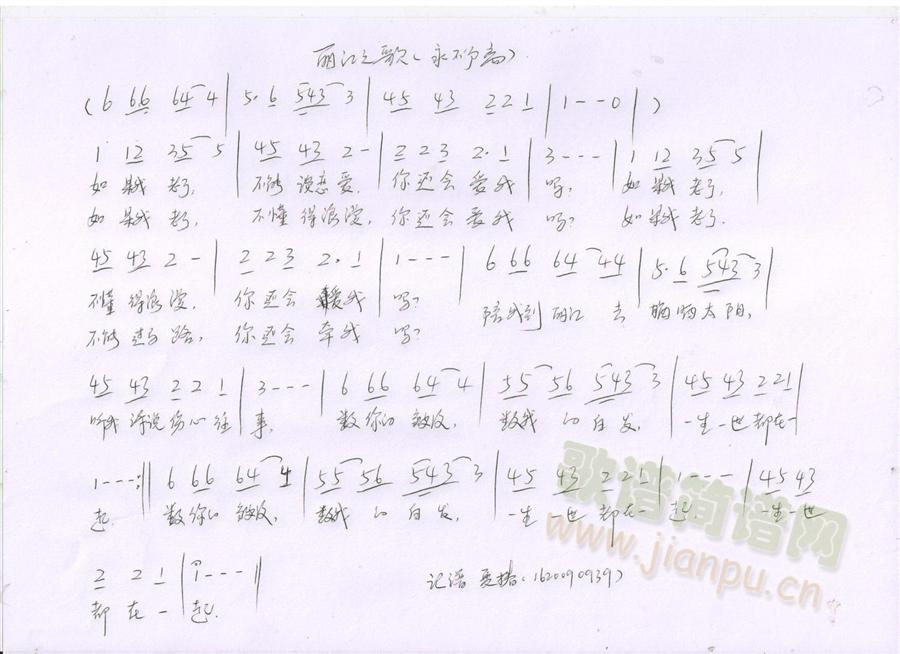 丽江之歌(永不分离)
( 6 66 64 4 | 5· 6 543 3 | 45 43 221 | 1--0 | )
1 12 35 5 | 45 43 2- | 223 2·1 | 3--- | 1 12 35 5 |
如果我老了, 不能谈恋爱, 你还会爱我吗? 如果我老了,
如果我老了, 不懂得浪漫, 你还会爱我吗? 如果我老了.
45 43 2- | 2 23 2·1 | 1--- | 6 66 64 44 | 5·6 543 3 |
不懂得浪漫, 你还会爱我吗? 陪我到丽江去晒晒太阳,
不能走路, 你还会牵我吗?
45 43 2 2 1 | 3--- | 6 66 64 4 | 55 56 543 3 | 45 43 221 |
听我诉说伤心往事, 数你的皱纹, 数我的白发, 一生一世都在一
1---:|| 6 66 64 4 | 55 56 543 3 | 45 43 221 | 1--- | 45 43
起. 数你的皱纹, 数我的白发, 一生一世都在一起. 一生一世
2 2 1 | 1--- ||
都在一起.
记谱 (1620090939)
歌谱简谱网
www.jianpu.cn